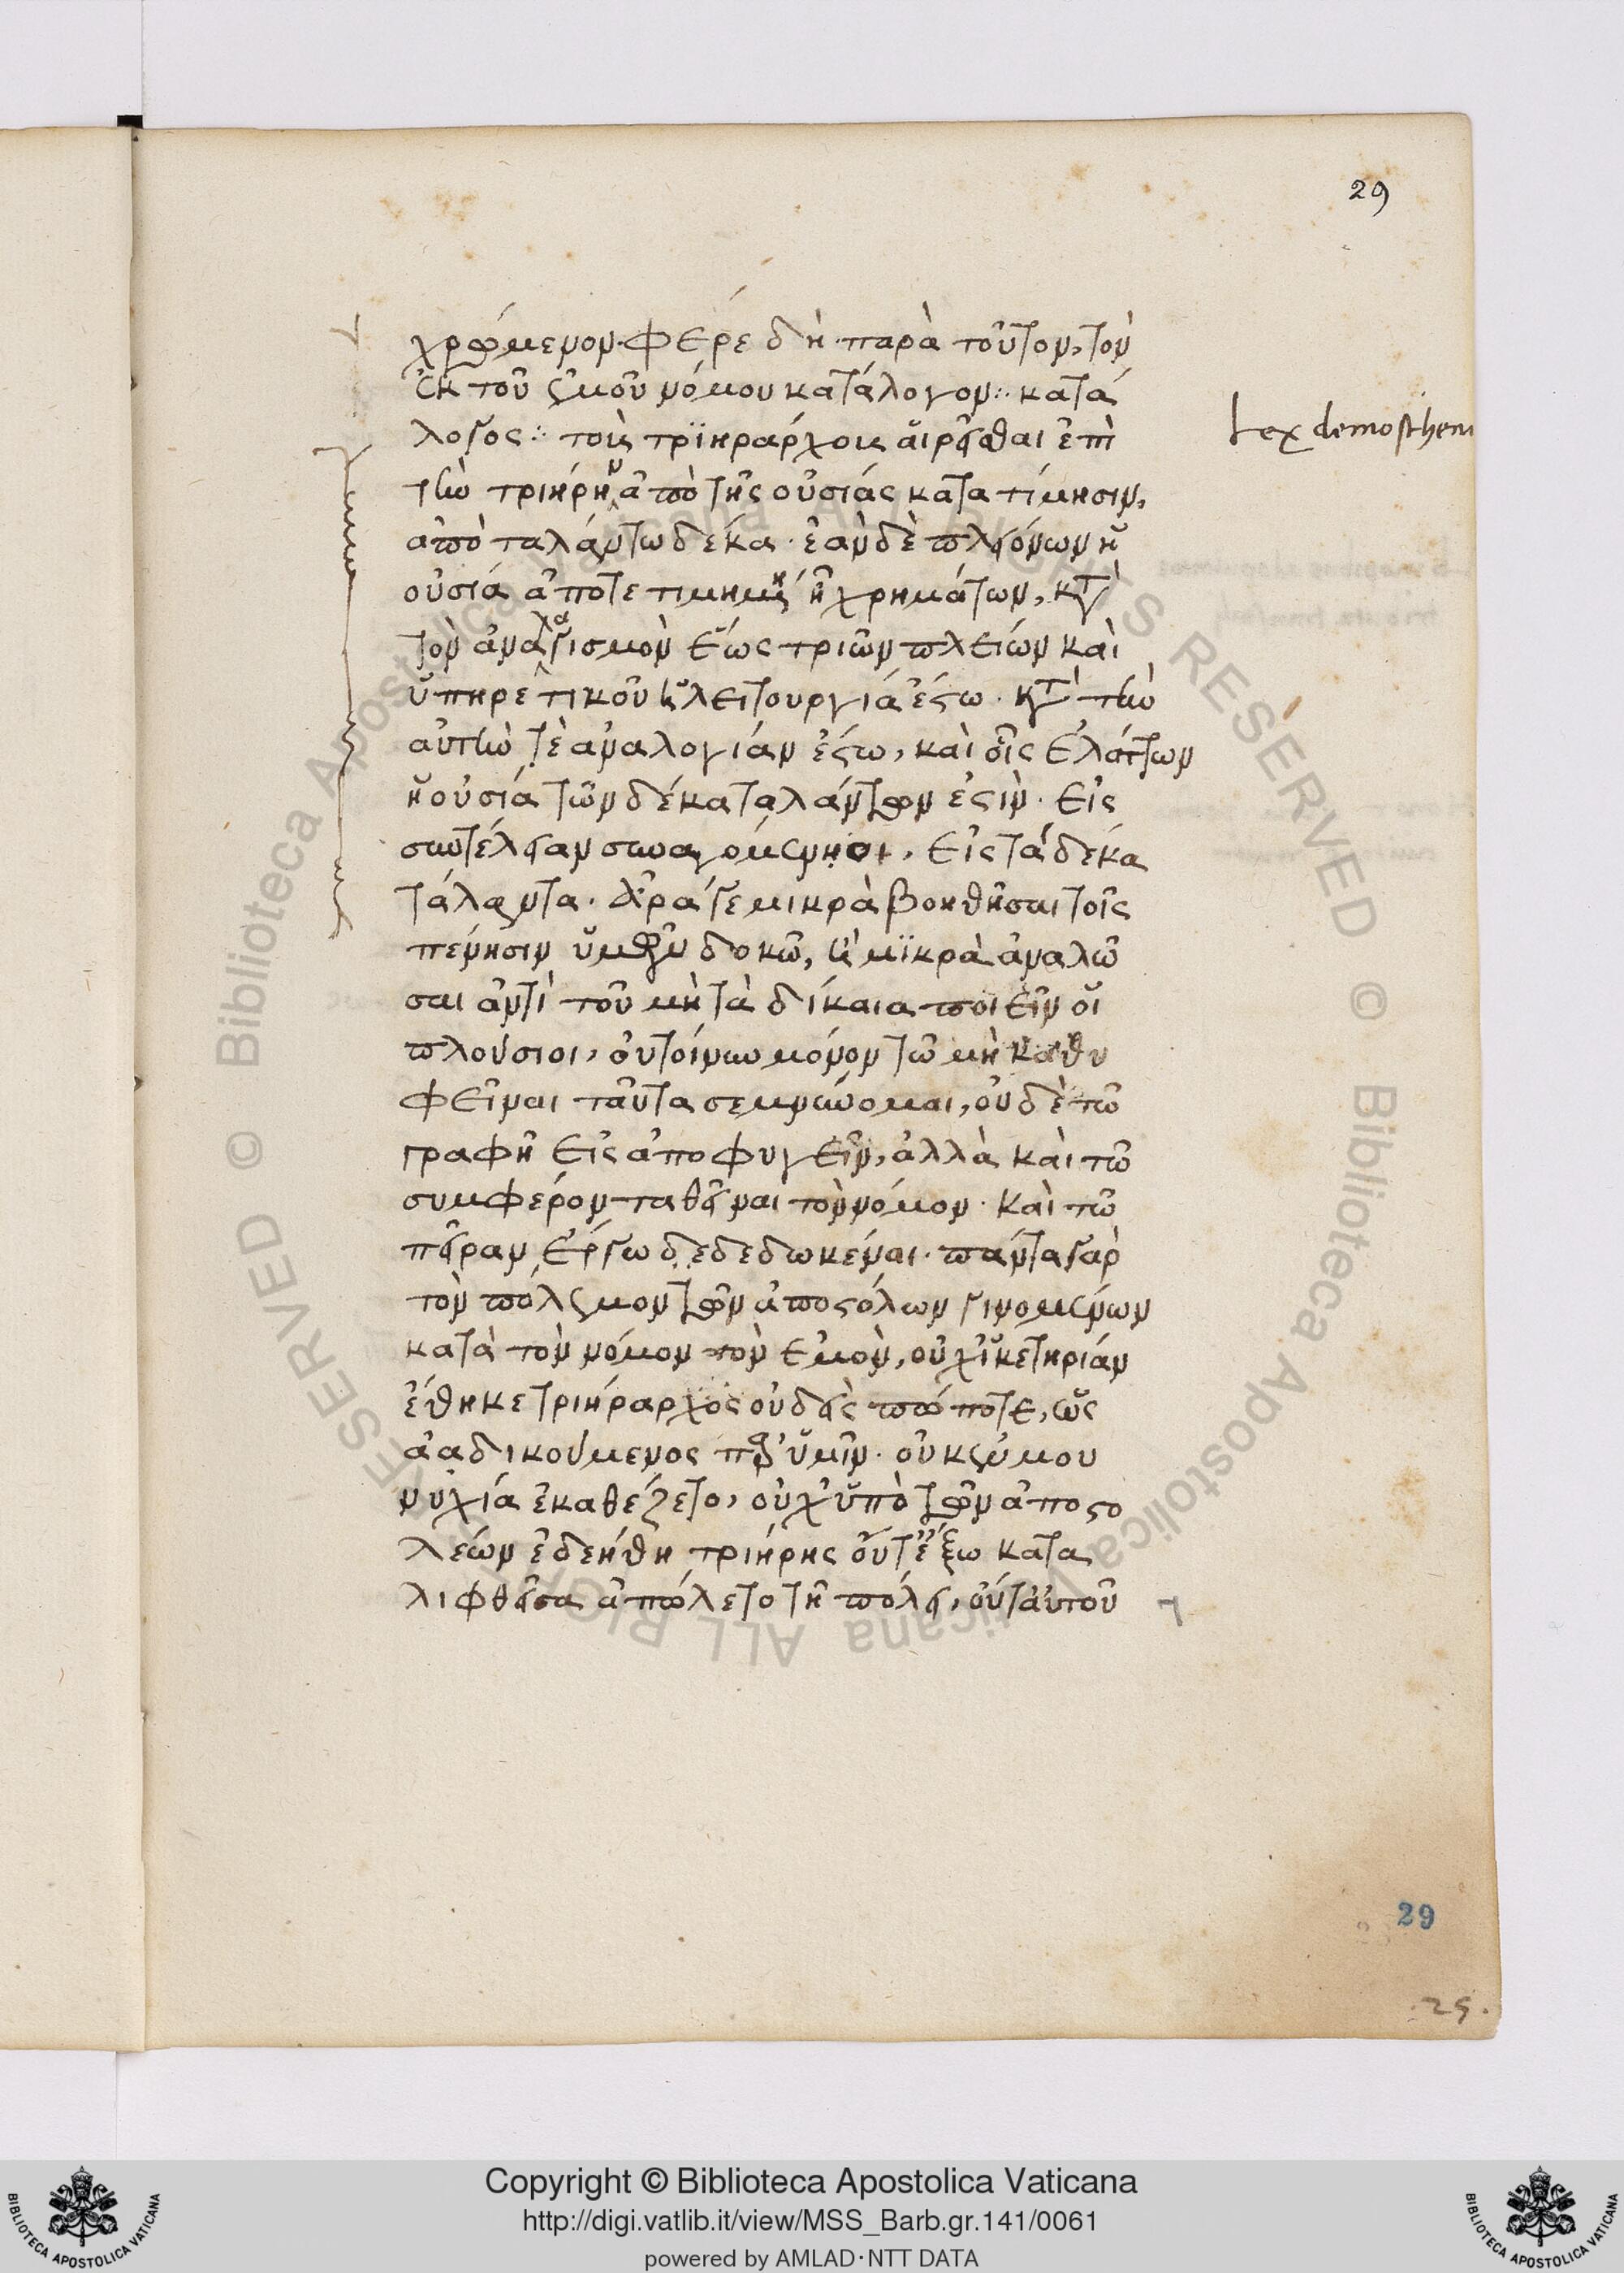 29
χρεώμενον. φέρε δὴ παρὰ τοῦτον, τὸν
ἐκ τοῦ ἐμοῦ νόμου κατάλογον ⁘ κατά
λογος ⁘ τοὺς τριηράρχους αἱρεῖσθαι ἐπὶ
Lex demosthenis
τὴν τριήρη ἀπὸ τῆς οὐσίας κατα τίμησιν,
ἀπὸ ταλάντω δέκα. ἐὰν δὲ πλειόνων ἡ
οὐσία ἀποτετιμημένη ἦ χρημάτων, κατὰ
τὸν ἀναλογισμὸν ἕως τριῶν πλείων καὶ
ὑπηρετικοῦ ἡ λειτουργία ἔστω. κατὰ τὴν
αὐτὴν τὲ ἀναλογίαν ἔστω, καὶ οἷς ἐλάττων
ἡ οὐσία τῶν δέκα ταλάντων ἐστιν. εἰς
συντέλειαν συναγομένησι, εἰς τὰ δέκα
τάλαντα. ἆρά γε μικρὰ βοηθῆσαι τοῖς
πένησιν ὑμῶν δοκῶ, ἢ μικρὰ ἀναλῶ
σαι ἀντὶ τοῦ μὴ τὰ δίκαια ποιεῖν οἱ
πλούσιοι, οὐ τοίνυν μόνον τῶ μὴ καθυ
φεῖναι ταῦτα σεμνύνομαι, οὐδὲ τῶ
γραφῆ εἰς ἀποφυγεῖν, ἀλλὰ καὶ τῶ
συμφέροντα θεῖναι τὸν νόμον. καὶ τῶ
πεῖραν ἔργω δεδεδωκέναι. πάντα γαρ
τὸν πόλεμον τῶν ἀποστόλων γινομένων
κατὰ τὸν νόμον τὸν ἐμὸν, οὐχ ἱκέτηρίαν
ἔθηκε τριήραρχος οὐδεὶς πώποτε, ὡς
ἀαδικούμενος παρ' ὑμῖν. οὐκ ἐν μου
νυχία ἐκαθέζετο, οὐχ ὑπὸ τῶν ἀποστο
λέων ἐδεήθη τριήρης οὔτ' ἔξω κατα
λιφθεῖσα ἀπώλετο τῆ πόλει, οὔτ' αὐτοῦ
29
25.
Copyright © Biblioteca Apostolica Vaticana
http://digi.vatlib.it/view/MSS_Barb.gr.141/0061
powered by AMLAD·NTT DATA